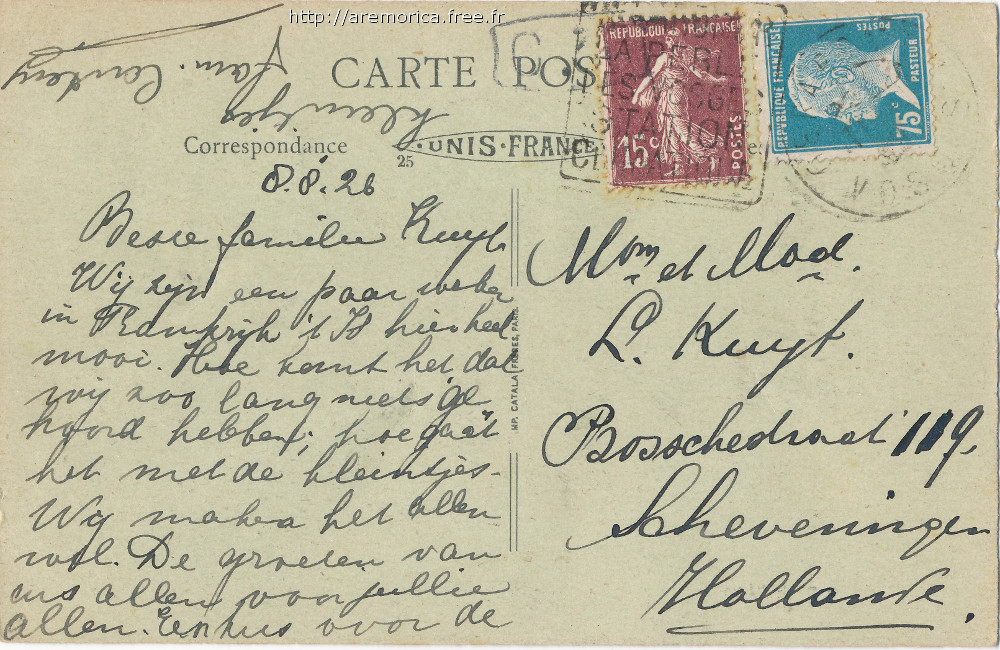 http://aremorica.free.fr
CARTE POS
Correspondance
25
UNIS-FRANCE
REPUBLIQUE FRANÇAISE
15c
POSTES
REPUBLIQUE FRANÇAISE
POSTES
PASTEUR
75c
8.8.26
Beste familie Kuyt.
Wij zijn een paar weken
in Frankrijk 't Is hier heel
mooi. Hoe komt het dat
wij zoo lang niets ge
hoord hebben, hoe gaat
het met de kleintjes.
Wij maken het allen
wel. De groeten van
ons allen voor jullie
allen. En kus voor de
kleintjes
fam.
IMP. CATALA FRERES, PARIS
Mom et Mad.
L. Kuyt.
Bosschestraat 119.
Scheveningen
Hollande.